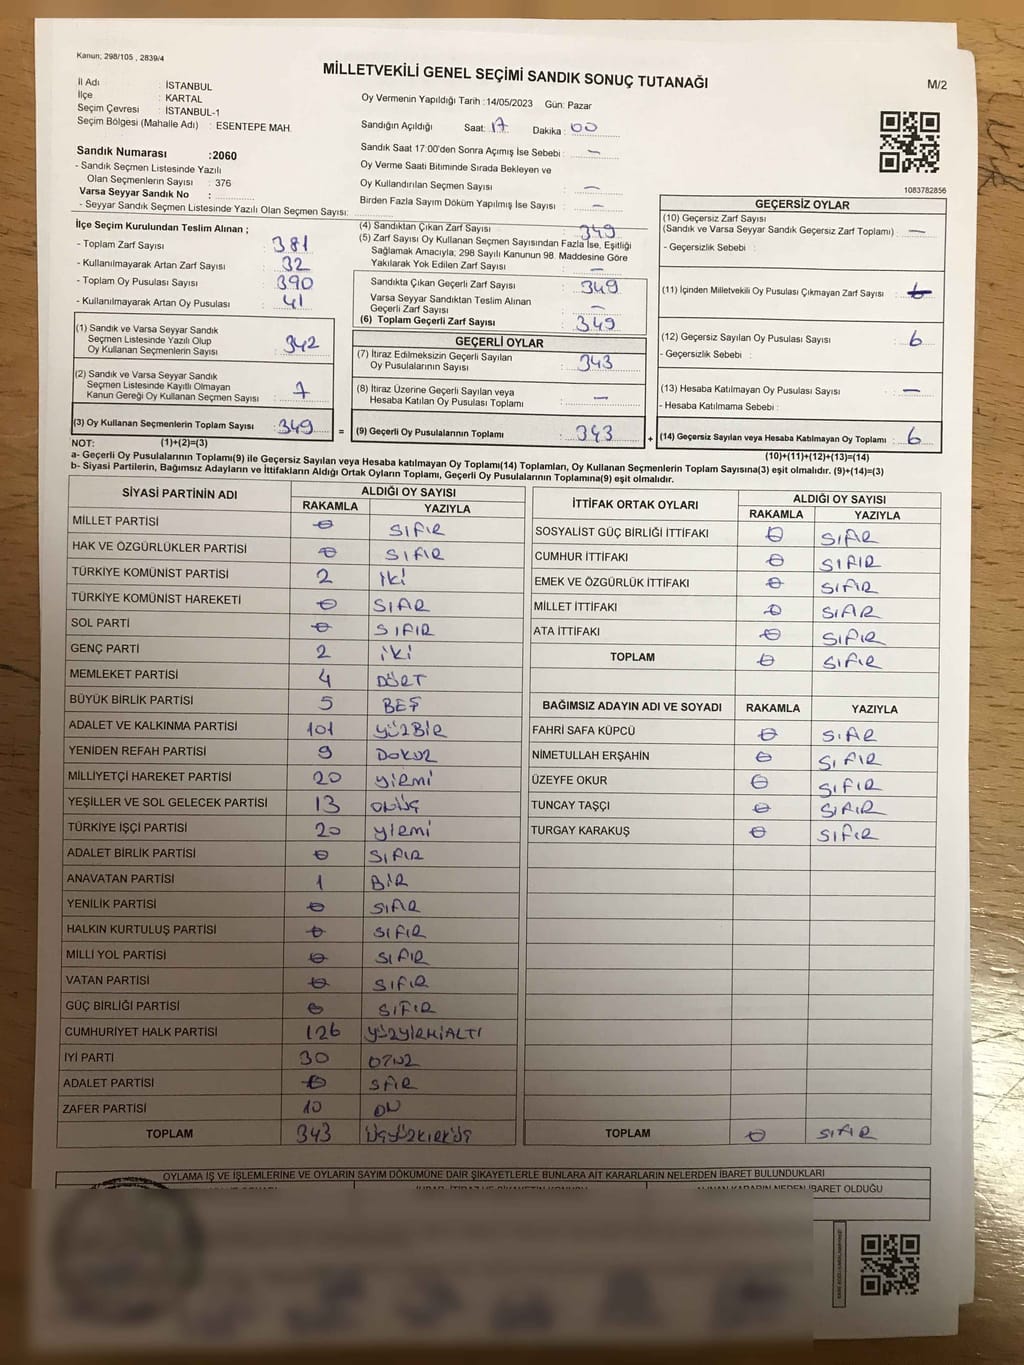 Kanun; 298/105 , 2839/4
MİLLETVEKİLİ GENEL SEÇİMİ SANDIK SONUÇ TUTANAĞI
M/2
İl Adı : İSTANBUL
İlçe : KARTAL
Seçim Çevresi : İSTANBUL-1
Seçim Bölgesi (Mahalle Adı) : ESENTEPE MAH.
Oy Vermenin Yapıldığı Tarih :14/05/2023 Gün: Pazar
Sandığın Açıldığı Saat: 17 Dakika : 00
Sandık Saat 17:00'den Sonra Açmış İse Sebebi : —
Oy Verme Saati Bitiminde Sırada Bekleyen ve
Oy Kullandırılan Seçmen Sayısı : —
Birden Fazla Sayım Döküm Yapılmış İse Sayısı : —
Sandık Numarası :2060
- Sandık Seçmen Listesinde Yazılı
Olan Seçmenlerin Sayısı : 376
Varsa Seyyar Sandık No :
- Seyyar Sandık Seçmen Listesinde Yazılı Olan Seçmen Sayısı:
1083782856
İlçe Seçim Kurulundan Teslim Alınan ;
- Toplam Zarf Sayısı : 381
- Kullanılmayarak Artan Zarf Sayısı : 32
- Toplam Oy Pusulası Sayısı : 390
- Kullanılmayarak Artan Oy Pusulası : 41
(1) Sandık ve Varsa Seyyar Sandık
Seçmen Listesinde Yazılı Olup
Oy Kullanan Seçmenlerin Sayısı : 342
(2) Sandık ve Varsa Seyyar Sandık
Seçmen Listesinde Kayıtlı Olmayan
Kanun Gereği Oy Kullanan Seçmen Sayısı : 7
(3) Oy Kullanan Seçmenlerin Toplam Sayısı : 349
(4) Sandıktan Çıkan Zarf Sayısı : 349
(5) Zarf Sayısı Oy Kullanan Seçmen Sayısından Fazla İse, Eşitliği
Sağlamak Amacıyla; 298 Sayılı Kanunun 98. Maddesine Göre
Yakılarak Yok Edilen Zarf Sayısı : —
Sandıkta Çıkan Geçerli Zarf Sayısı : 349
Varsa Seyyar Sandıktan Teslim Alınan
Geçerli Zarf Sayısı : —
(6) Toplam Geçerli Zarf Sayısı : 349
GEÇERLİ OYLAR
(7) İtiraz Edilmeksizin Geçerli Sayılan
Oy Pusulalarının Sayısı : 343
(8) İtiraz Üzerine Geçerli Sayılan veya
Hesaba Katılan Oy Pusulası Toplamı : —
= (9) Geçerli Oy Pusulalarının Toplamı : 343
GEÇERSİZ OYLAR
(10) Geçersiz Zarf Sayısı
(Sandık ve Varsa Seyyar Sandık Geçersiz Zarf Toplamı) : —
- Geçersizlik Sebebi :
(11) İçinden Milletvekili Oy Pusulası Çıkmayan Zarf Sayısı :
(12) Geçersiz Sayılan Oy Pusulası Sayısı : 6
- Geçersizlik Sebebi :
(13) Hesaba Katılmayan Oy Pusulası Sayısı : —
- Hesaba Katılmama Sebebi :
+ (14) Geçersiz Sayılan veya Hesaba Katılmayan Oy Toplamı : 6
NOT: (1)+(2)=(3)
(10)+(11)+(12)+(13)=(14)
a- Geçerli Oy Pusulalarının Toplamı(9) ile Geçersiz Sayılan veya Hesaba katılmayan Oy Toplamı(14) Toplamları, Oy Kullanan Seçmenlerin Toplam Sayısına(3) eşit olmalıdır. (9)+(14)=(3)
b- Siyasi Partilerin, Bağımsız Adayların ve İttifakların Aldığı Ortak Oyların Toplamı, Geçerli Oy Pusulalarının Toplamına(9) eşit olmalıdır.
SİYASİ PARTİNİN ADI ALDIĞI OY SAYISI
RAKAMLA YAZIYLA
MİLLET PARTİSİ 0 SIFIR
HAK VE ÖZGÜRLÜKLER PARTİSİ 0 SIFIR
TÜRKİYE KOMÜNİST PARTİSİ 2 İKİ
TÜRKİYE KOMÜNİST HAREKETİ 0 SIFIR
SOL PARTİ 0 SIFIR
GENÇ PARTİ 2 İKİ
MEMLEKET PARTİSİ 4 DÖRT
BÜYÜK BİRLİK PARTİSİ 5 BEŞ
ADALET VE KALKINMA PARTİSİ 101 YÜZBİR
YENİDEN REFAH PARTİSİ 9 DOKUZ
MİLLİYETÇİ HAREKET PARTİSİ 20 YİRMİ
YEŞİLLER VE SOL GELECEK PARTİSİ 13 ONÜÇ
TÜRKİYE İŞÇİ PARTİSİ 20 YİRMİ
ADALET BİRLİK PARTİSİ 0 SIFIR
ANAVATAN PARTİSİ 1 BİR
YENİLİK PARTİSİ 0 SIFIR
HALKIN KURTULUŞ PARTİSİ 0 SIFIR
MİLLİ YOL PARTİSİ 0 SIFIR
VATAN PARTİSİ 0 SIFIR
GÜÇ BİRLİĞİ PARTİSİ 0 SIFIR
CUMHURİYET HALK PARTİSİ 126 YÜZYİRMİALTI
İYİ PARTİ 30 OTUZ
ADALET PARTİSİ 0 SIFIR
ZAFER PARTİSİ 10 ON
TOPLAM 343 ÜÇYÜZKIRKÜÇ
İTTİFAK ORTAK OYLARI ALDIĞI OY SAYISI
RAKAMLA YAZIYLA
SOSYALİST GÜÇ BİRLİĞİ İTTİFAKI 0 SIFIR
CUMHUR İTTİFAKI 0 SIFIR
EMEK VE ÖZGÜRLÜK İTTİFAKI 0 SIFIR
MİLLET İTTİFAKI 0 SIFIR
ATA İTTİFAKI 0 SIFIR
TOPLAM 0 SIFIR
BAĞIMSIZ ADAYIN ADI VE SOYADI RAKAMLA YAZIYLA
FAHRİ SAFA KÜPCÜ 0 SIFIR
NİMETULLAH ERŞAHİN 0 SIFIR
ÜZEYFE OKUR 0 SIFIR
TUNCAY TAŞÇI 0 SIFIR
TURGAY KARAKUŞ 0 SIFIR
TOPLAM 0 SIFIR
OYLAMA İŞ VE İŞLEMLERİNE VE OYLARIN SAYIM DÖKÜMÜNE DAİR ŞİKAYETLERLE BUNLARA AİT KARARLARIN NELERDEN İBARET BULUNDUKLARI
ALINAN KARARIN NEDEN İBARET OLDUĞU